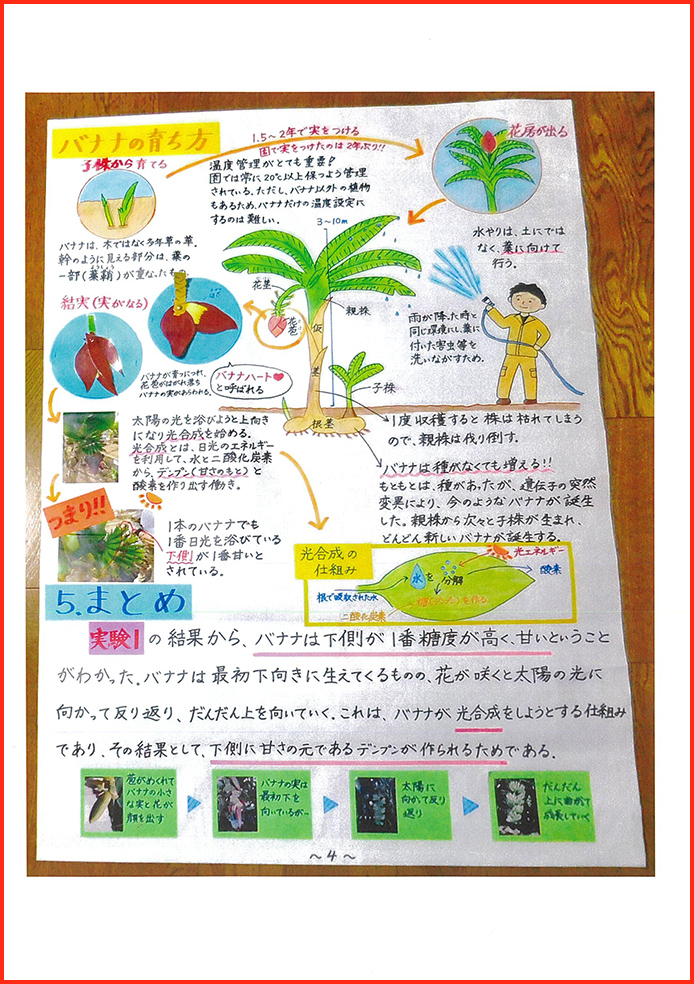 バナナの育ち方
子株から育てる
1.5〜2年で実をつける
園で実をつけたのは2年ぶり!!
温度管理がとても重要!
園では常に20℃以上保つよう管理
されている。ただし、バナナ以外の植物
もあるため、バナナだけの温度設定に
するのは難しい。
花房が出る
バナナは、木ではなく多年草の草。
幹のように見える部分は、葉の
一部(葉鞘)が重なったもの
3〜10m
水やりは、土にでは
なく、葉に向けて
行う。
雨が降った時と
同じ環境にし、葉に
付いた害虫等を
洗いながすため。
結実(実がなる)
花茎
花苞
親株
仮
茎
子株
根茎
バナナハート
と呼ばれる
バナナが育つにつれ、
花苞がはがれ落ち
バナナの実があらわれる。
太陽の光を浴びようと上向き
になり光合成を始める。
光合成とは、日光のエネルギー
を利用して、水と二酸化炭素
から、デンプン(甘さのもと)と
酸素を作り出す働き。
1度収穫すると株は枯れてしまう
ので、親株は伐り倒す。
バナナは種がなくても増える!!
もともとは、種があったが、遺伝子の突然
変異により、今のようなバナナが誕生
した。親株から次々と子株が生まれ、
どんどん新しいバナナが誕生する。
つまり!!
1本のバナナでも
1番日光を浴びている
下側が1番甘いと
されている。
光合成の
仕組み
光エネルギー
水を分解
酸素
根で吸収された水
二酸化炭素
5.まとめ
実験1の結果から、バナナは下側が1番糖度が高く、甘いということ
がわかった。バナナは最初下向きに生えてくるものの、花が咲くと太陽の光に
向かって反り返り、だんだん上を向いていく。これは、バナナが光合成をしようとする仕組み
であり、その結果として、下側に甘さの元であるデンプンが作られるためである。
苞がめくれて
バナナの小さ
な実と花が
顔を出す
バナナの実は
最初下を
向いているが…
太陽に
向かて反り
返り
だんだん
上に曲がて
成長していく
〜4〜